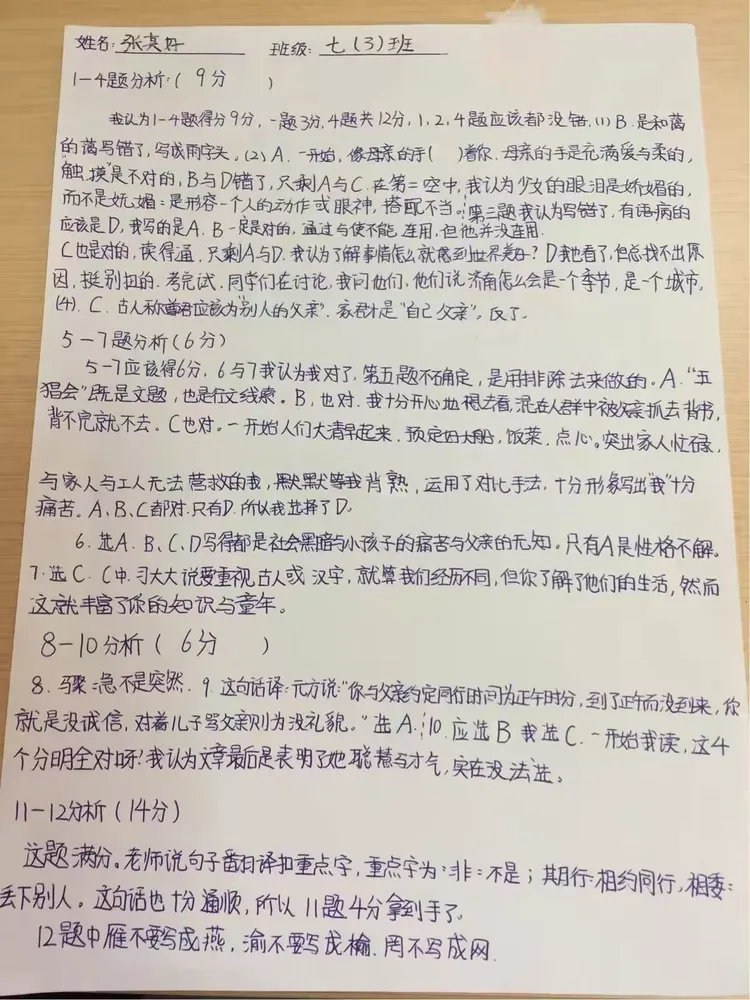 姓名:张其好 班级:七(3)班
1-4题分析:(9分 )
我认为1-4题得分9分,一题3分,4题共12分,1,2,4题应该都没错.(1)B.是和蔼
的蔼写错了,写成雨字头。(2)A.一开始,像母亲的手( )着你.母亲的手是充满爱与柔的,
"触摸"是不对的,B与D错了,只剩A与C.在第二空中,我认为少女的眼泪是娇媚的,
而不是妩媚:是形容一个人的动作或眼神,搭配不当。第三题我认为写错了,有语病的
应该是D,我写的是A.B一定是对的,通过与使不能连用,但他并没连用.
C也是对的,读得通.只剩A与D.我认为了解事情怎么就感到世界美好?D我也看了,但总找不出原
因,挺别扭的.考完试,同学们在讨论,我问他们,他们说济南怎么会是一个季节,是一个城市。
(4).C.古人称尊君应该为"别人的父亲".家君才是"自己父亲".反了。
5-7题分析(6分)
5-7应该得6分,6与7我认为我对了,第五题不确定,是用排除法来做的。A."五
猖会"既是文题,也是行文线索。B,也对.我十分开心地想去看,混在人群中被父亲抓去背书,
背不完就不去。C也对。一开始人们大清早起来.预定好大船,饭菜.点心。突出家人忙碌,
与家人与工人无法营救的我,默默等我背熟,运用了对比手法,十分形象写出"我"十分
痛苦。A、B、C都对.只有D.所以我选择了D.
6.选A.B、C、D写得都是社会黑暗与小孩子的痛苦与父亲的无知。只有A是性格不解。
7.选C.C中.习大大说要重视古人或汉字,就算我们经历不同,但你了解了他们的生活,然而
这就丰富了你的知识与童年。
8-10分析(6分 )
8.骤:急.不是突然.9.这句话译:元方说:"你与父亲约定同行时间为正午时分,到了正午而没到来,你
就是没诚信,对着儿子骂父亲则为没礼貌。"选A.10.应选B我选C.一开始我读,这4
个分明全对呀!我认为文章最后是表明了她聪慧与才气,实在没法选。
11-12分析(14分)
这题满分。老师说句子翻译扣重点字,重点字为:非=不是;期行:相约同行,相委:
丢下别人。这句话也十分通顺,所以11题4分拿到手了。
12题中雁不要写成燕,渝不要写成榆.罔不写成网.